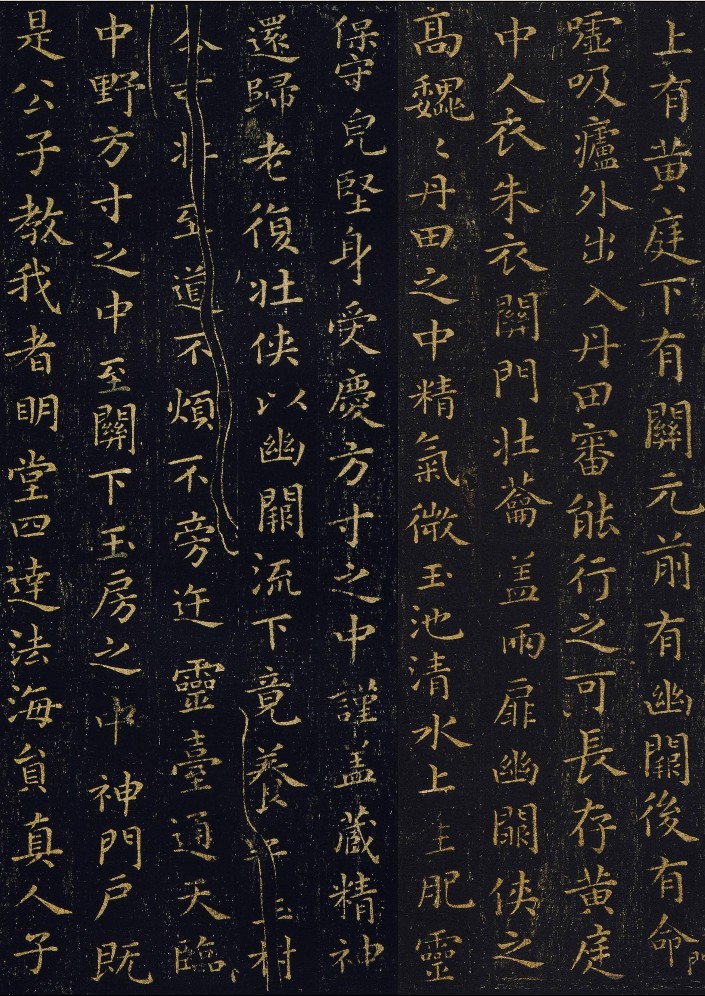 上有黄庭下有關元前有幽闕後有命門
嘘吸廬外出入丹田審能行之可長存黄庭
中人衣朱衣關門壯蘥盖兩扉幽闕侠之
高巍〻丹田之中精氣微玉池清水上生肥靈
保守皃堅身受慶方寸之中謹盖藏精神
還歸老復壯侠以幽闕流下竟養村
至道不煩不旁迕靈臺通天臨
中野方寸之中至關下玉房之中神門户既
是公子教我者明堂四達法海員真人子